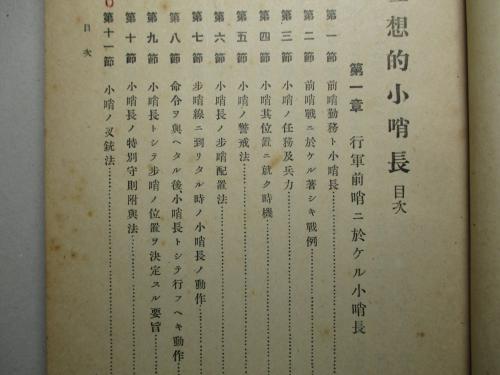 想的小哨長目次
第一章 行軍前哨ニ於ケル小哨長
第一節 前哨勤務ト小哨長
第二節 前哨戰ニ於ケル著シキ戰例
第三節 小哨ノ任務及兵力
第四節 小哨其位置ニ就ク時機
第五節 小哨ノ警戒法
第六節 小哨長ノ步哨配置法
第七節 步哨線ニ到リタル時ノ小哨長ノ動作
第八節 命令ヲ與ヘタル後小哨長トシテ行フヘキ動作
第九節 小哨長トシテ步哨ノ位置ヲ決定スル要旨
第十節 小哨長ノ特別守則附與法
第十一節 小哨ノ叉銃法
目次